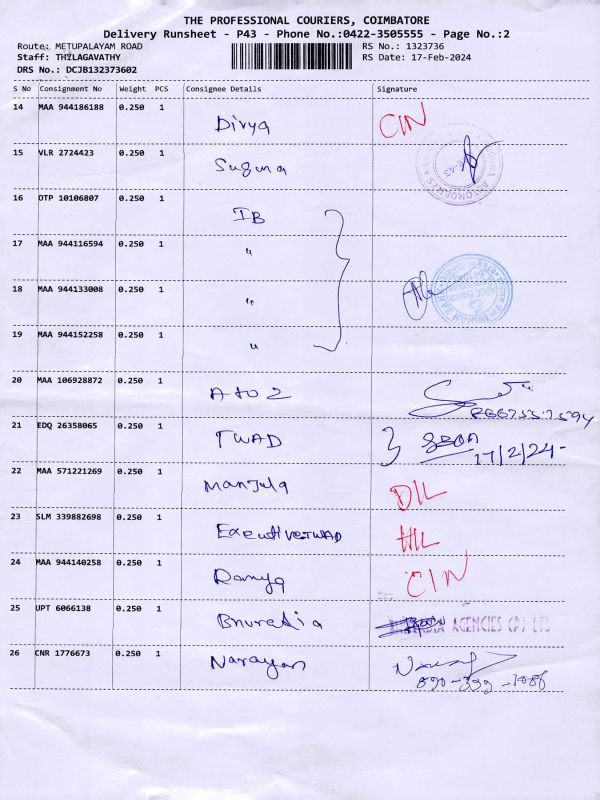 THE PROFESSIONAL COURIERS, COIMBATORE
Delivery Runsheet - P43 - Phone No.:0422-3505555 - Page No.:2
Route: METUPALAYAM ROAD RS No.: 1323736
Staff: THILAGAVATHY RS Date: 17-Feb-2024
DRS No.: DCJB132373602
S No Consignment No Weight PCS Consignee Details Signature
14 MAA 944186188 0.250 1 Divya CIN
15 VLR 2724423 0.250 1 Suguna
16 OTP 10106807 0.250 1 IB
17 MAA 944116594 0.250 1 "
18 MAA 944133008 0.250 1 "
19 MAA 944152258 0.250 1 "
20 MAA 106928872 0.250 1 A to Z
21 EDQ 26358065 0.250 1 TWAD 17/2/24-
22 MAA 571221269 0.250 1 Manjula DIL
23 SLM 339882698 0.250 1 Executive TWAD HIL
24 MAA 944140258 0.250 1 Ramya CIN
25 UPT 6066138 0.250 1 AGENCIES (P) LTD
26 CNR 1776673 0.250 1 Narayan